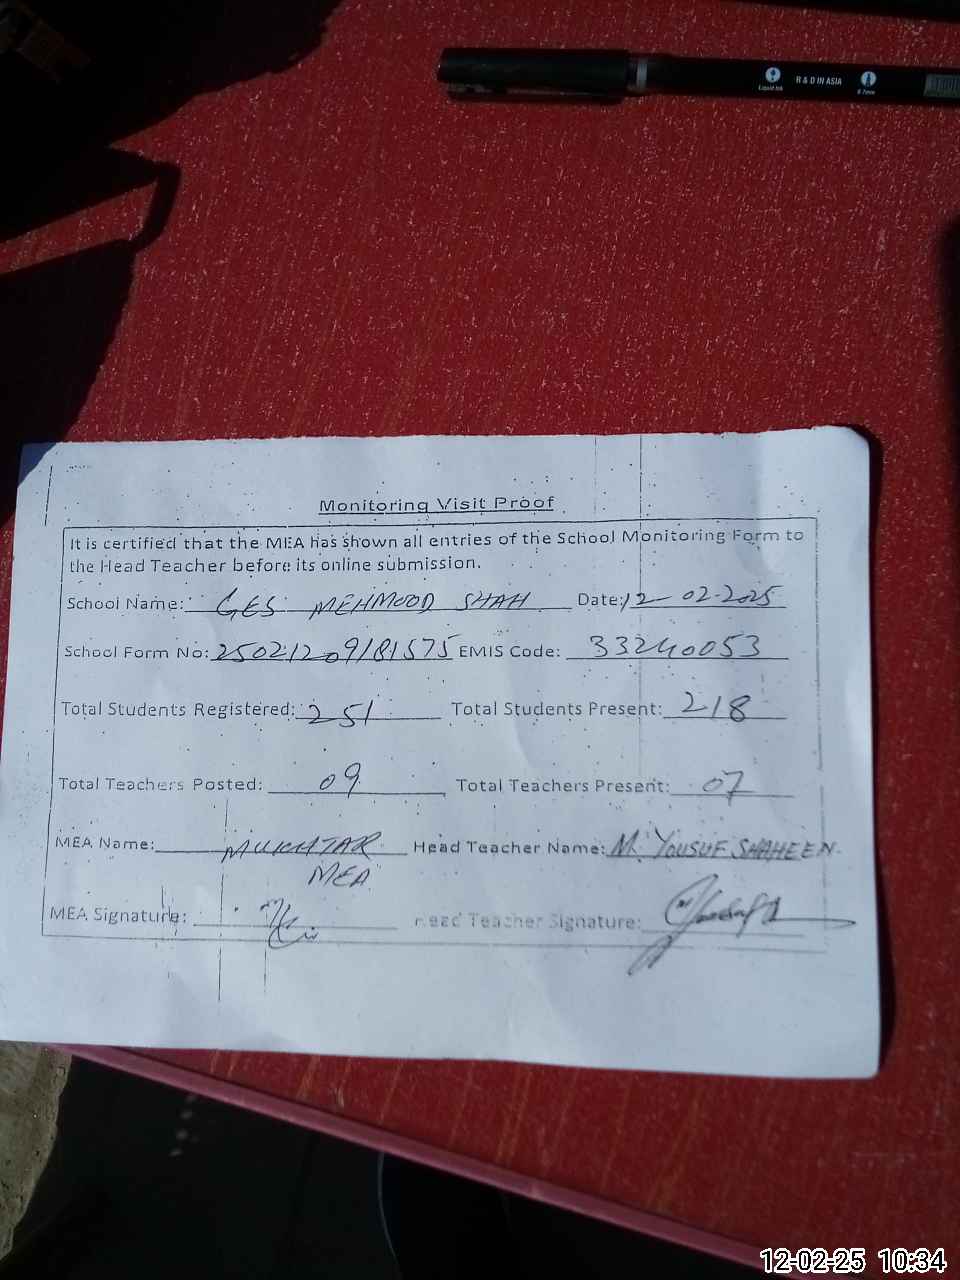 Liquid Ink R & D IN ASIA 0.7mm
Monitoring Visit Proof
It is certified that the MEA has shown all entries of the School Monitoring Form to
the Head Teacher before its online submission.
School Name: GES MEHMOOD SHAH Date: 12-02-2025
School Form No: 25021209181575 EMIS Code: 33240053
Total Students Registered: 251 Total Students Present: 218
Total Teachers Posted: 09 Total Teachers Present: 07
MEA Name: MUKHTAR Head Teacher Name: M. YOUSUF SHAHEEN
MEA
MEA Signature: Head Teacher Signature:
12-02-25 10:34